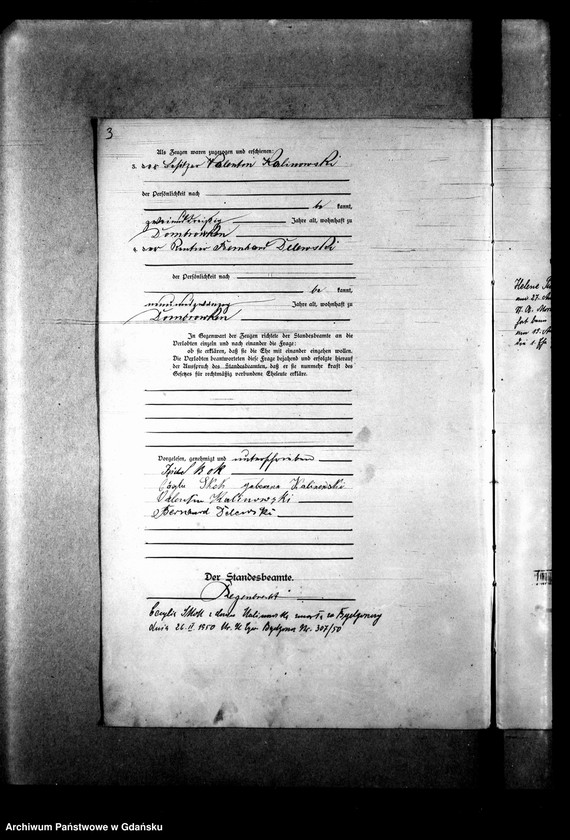 3
Als Zeugen waren zugezogen und erschienen:
3. der Besitzer Valentin Kalinowski
der Persönlichkeit nach
be kannt,
zweiunddreißig Jahre alt, wohnhaft zu
Dombrowken
4. der Rentier Bernhard Delewski
der Persönlichkeit nach
be kannt,
neunundzwanzig Jahre alt, wohnhaft zu
Dombrowken
In Gegenwart der Zeugen richtete der Standesbeamte an die
Verlobten einzeln und nach einander die Frage:
ob sie erklären, daß sie die Ehe mit einander eingehen wollen.
Die Verlobten beantworteten diese Frage bejahend und erfolgte hierauf
der Ausspruch des Standesbeamten, daß er sie nunmehr kraft des
Gesetzes für rechtmäßig verbundene Eheleute erkläre.
Vorgelesen, genehmigt und unterschrieben
geborene Kalinowski
Valentin Kalinowski
Bernhard Delewski
Der Standesbeamte.
Regenbrecht
z domu Kalinowska zmarła w Bydgoszczy
dnia 26. II 1950 Bydgoszcz Nr. 307/50
Helene
am 27.
Archiwum Państwowe w Gdańsku